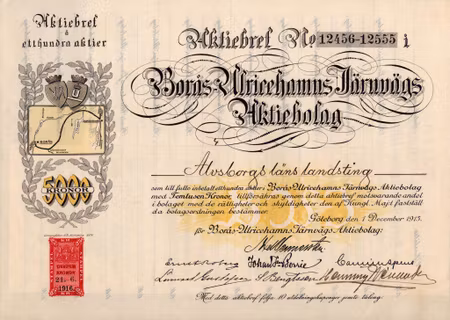 Aktiebref
å
etthundra aktier
Aktiebref No 12456-12555
Borås-Ulricehamns Järnvägs
Aktiebolag
5000
KRONOR
Älvsborgs läns landsting
som till fullo inbetalt etthundra aktier i Borås-Ulricehamns Järnvägs Aktiebolag
med Femtusen Kronor, tillförsäkras genom detta aktiebref motsvarande andel
i bolaget med de rättigheter och skyldigheter den af Kungl. Maj:t fastställda
bolagsordningen bestämmer.
Göteborg den 1 December 1915.
för Borås-Ulricehamns Järnvägs Aktiebolag:
Med detta aktiebref följa 10 utdelningskuponger jemte talong.
1916